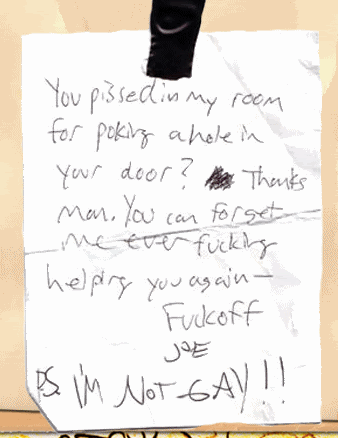 You pissed in my room
for poking a hole in
your door? Thanks
man. You can forget
me ever fucking
helping you again—
Fuckoff
JOE
P.S. I'M NOT GAY!!